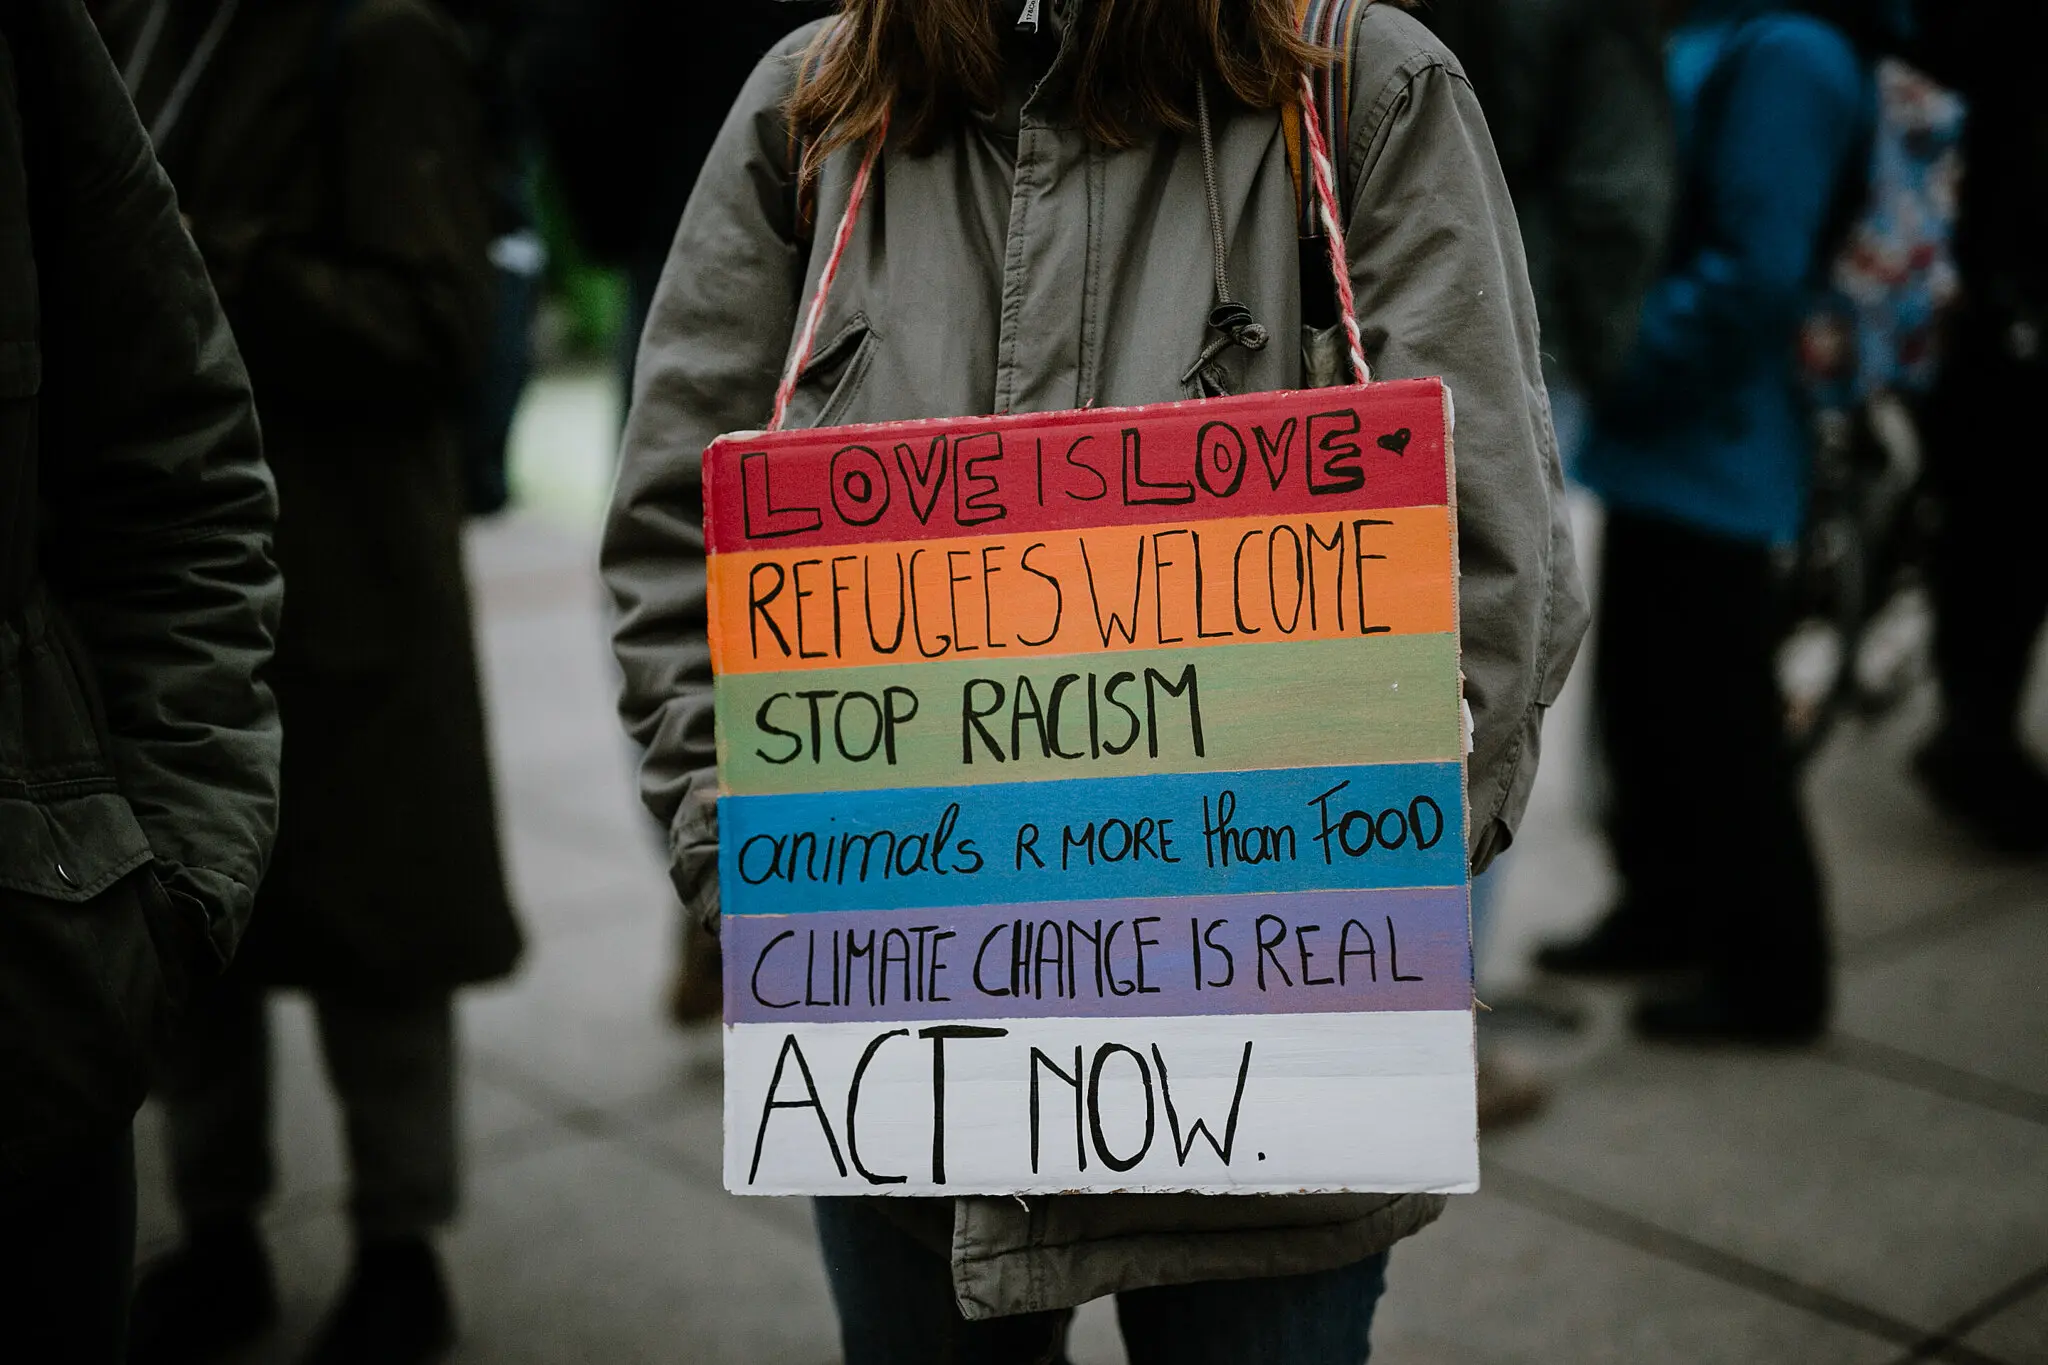 LOVE IS LOVE
REFUGEES WELCOME
STOP RACISM
animals R MORE than FOOD
CLIMATE CHANGE IS REAL
ACT NOW.